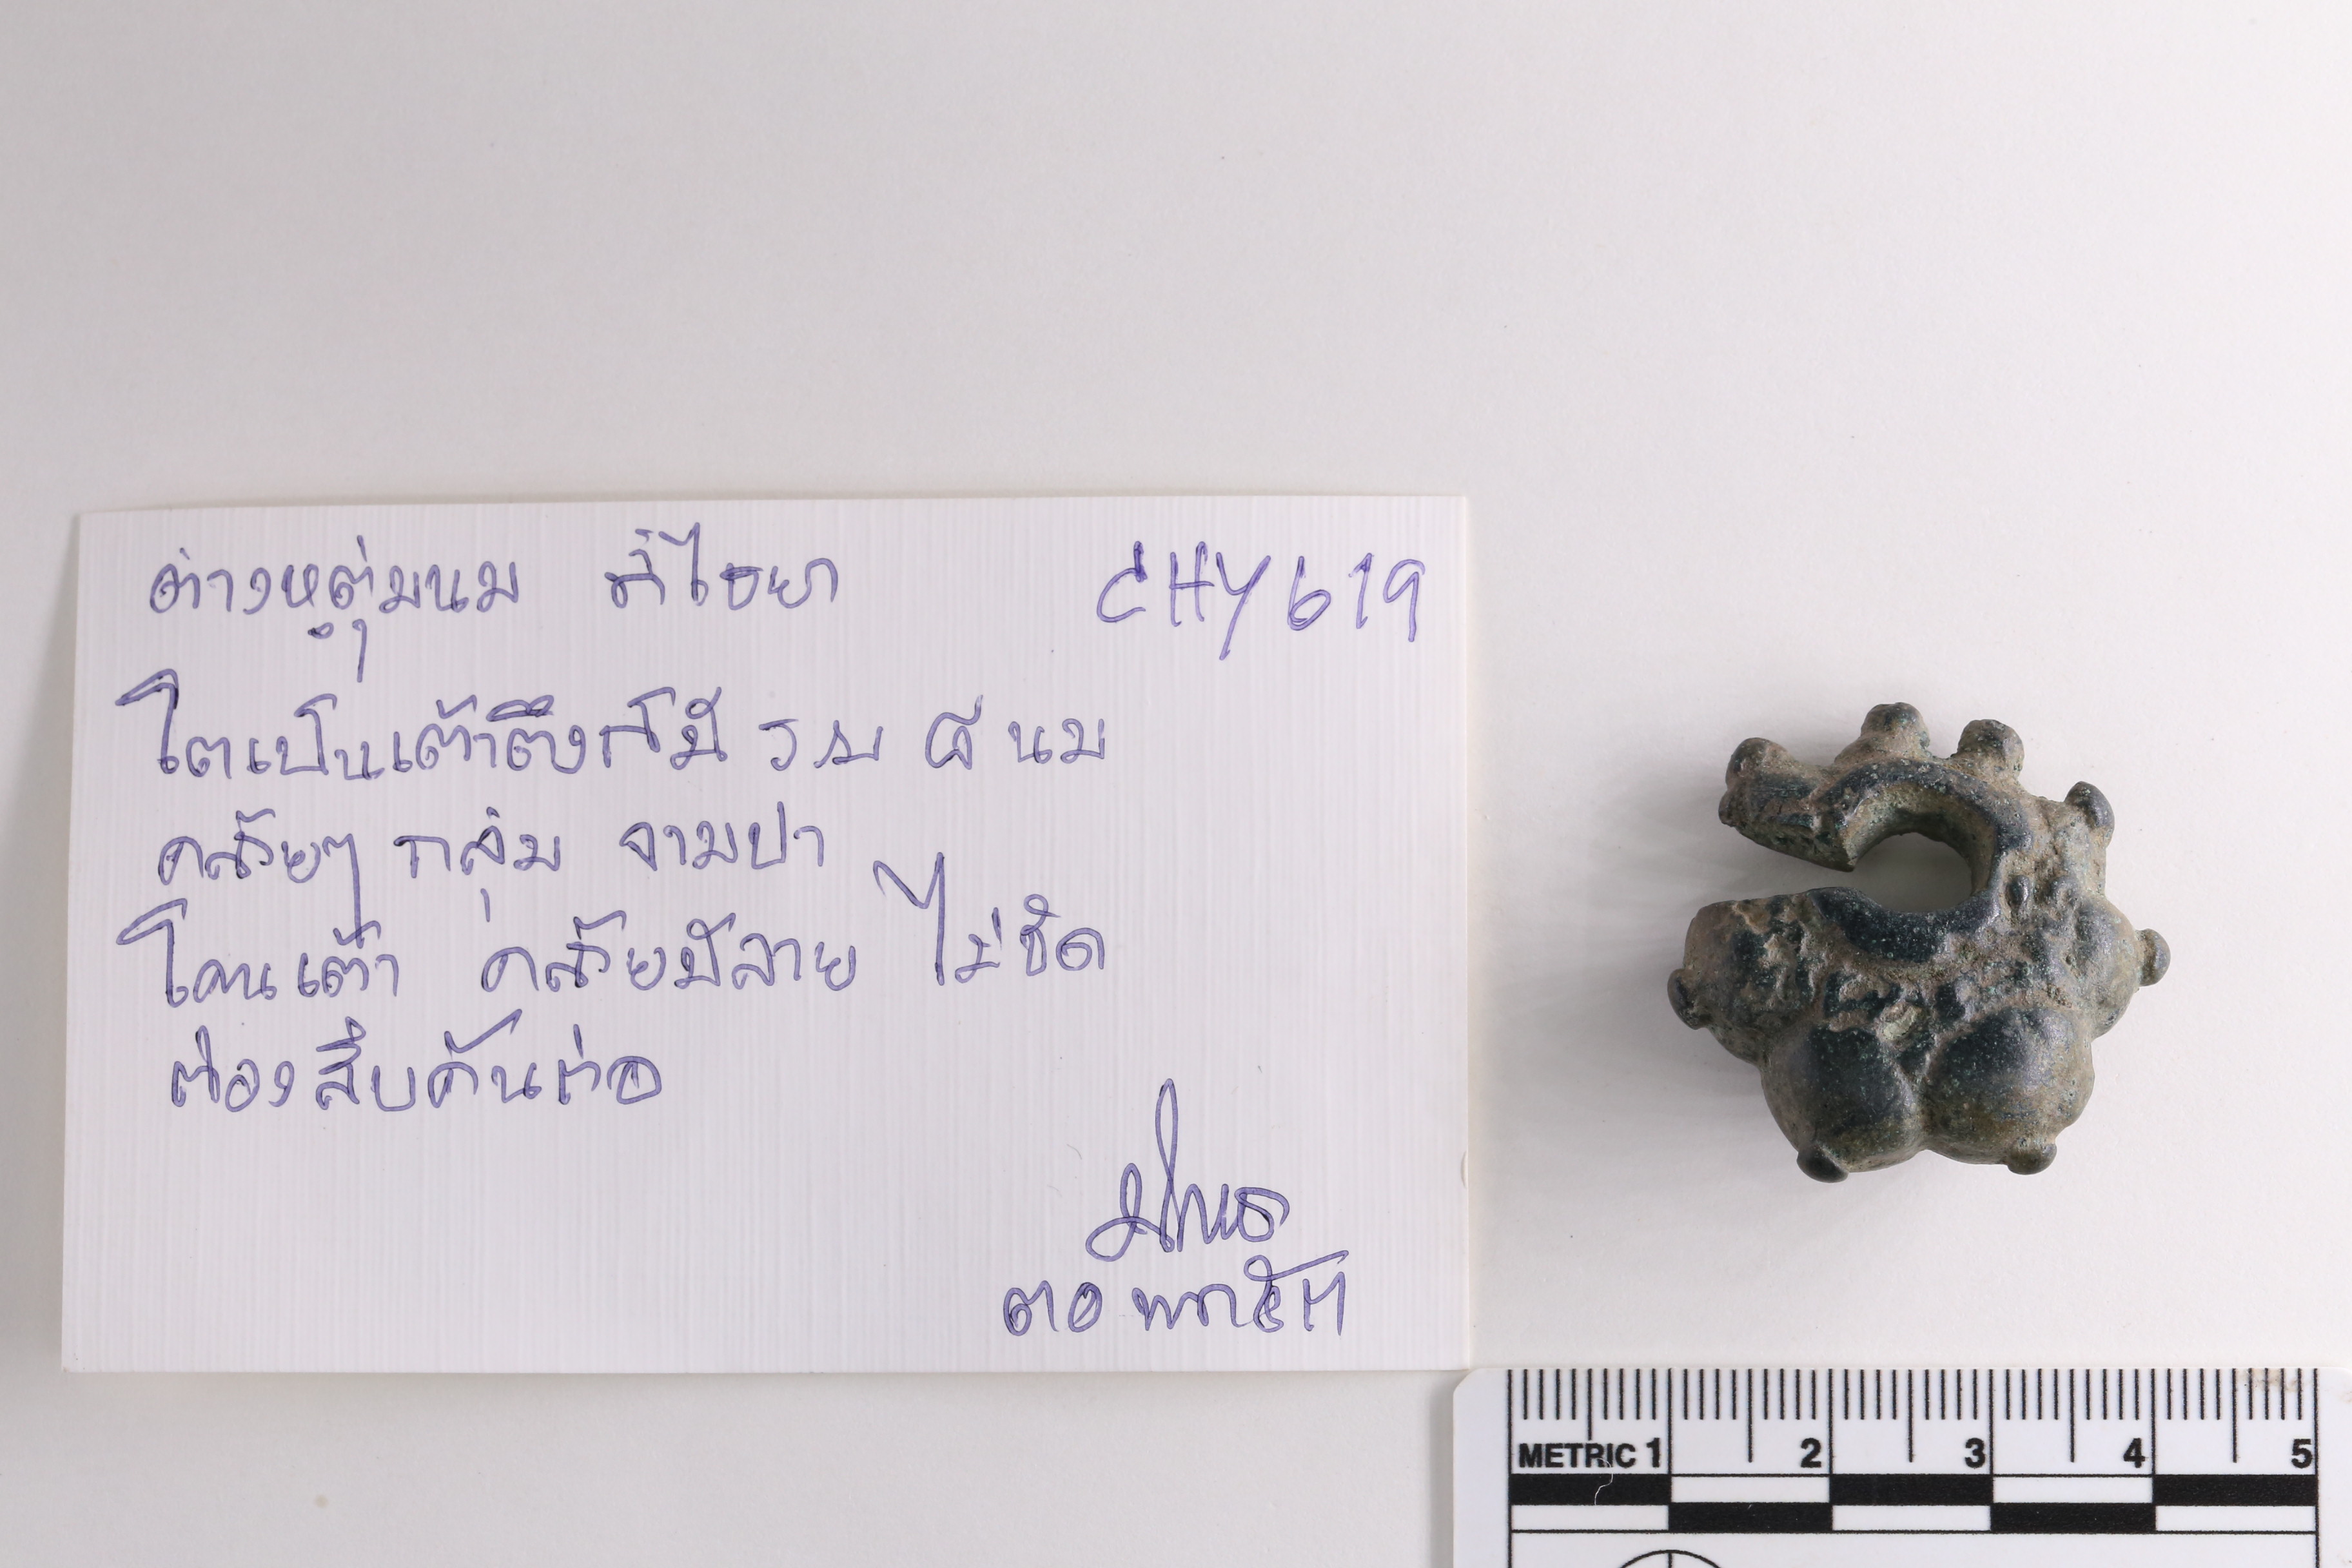 ต่างหูตุ่มนม ที่ไชยา CHY 619
โตเป็นเต้าตึงก็มี นม
คล้ายๆ กลุ่ม จามปา
โคนเต้า คล้ายมีลาย ไม่ชัด
ต้องสืบค้นต่อ
METRIC 1 2 3 4 5